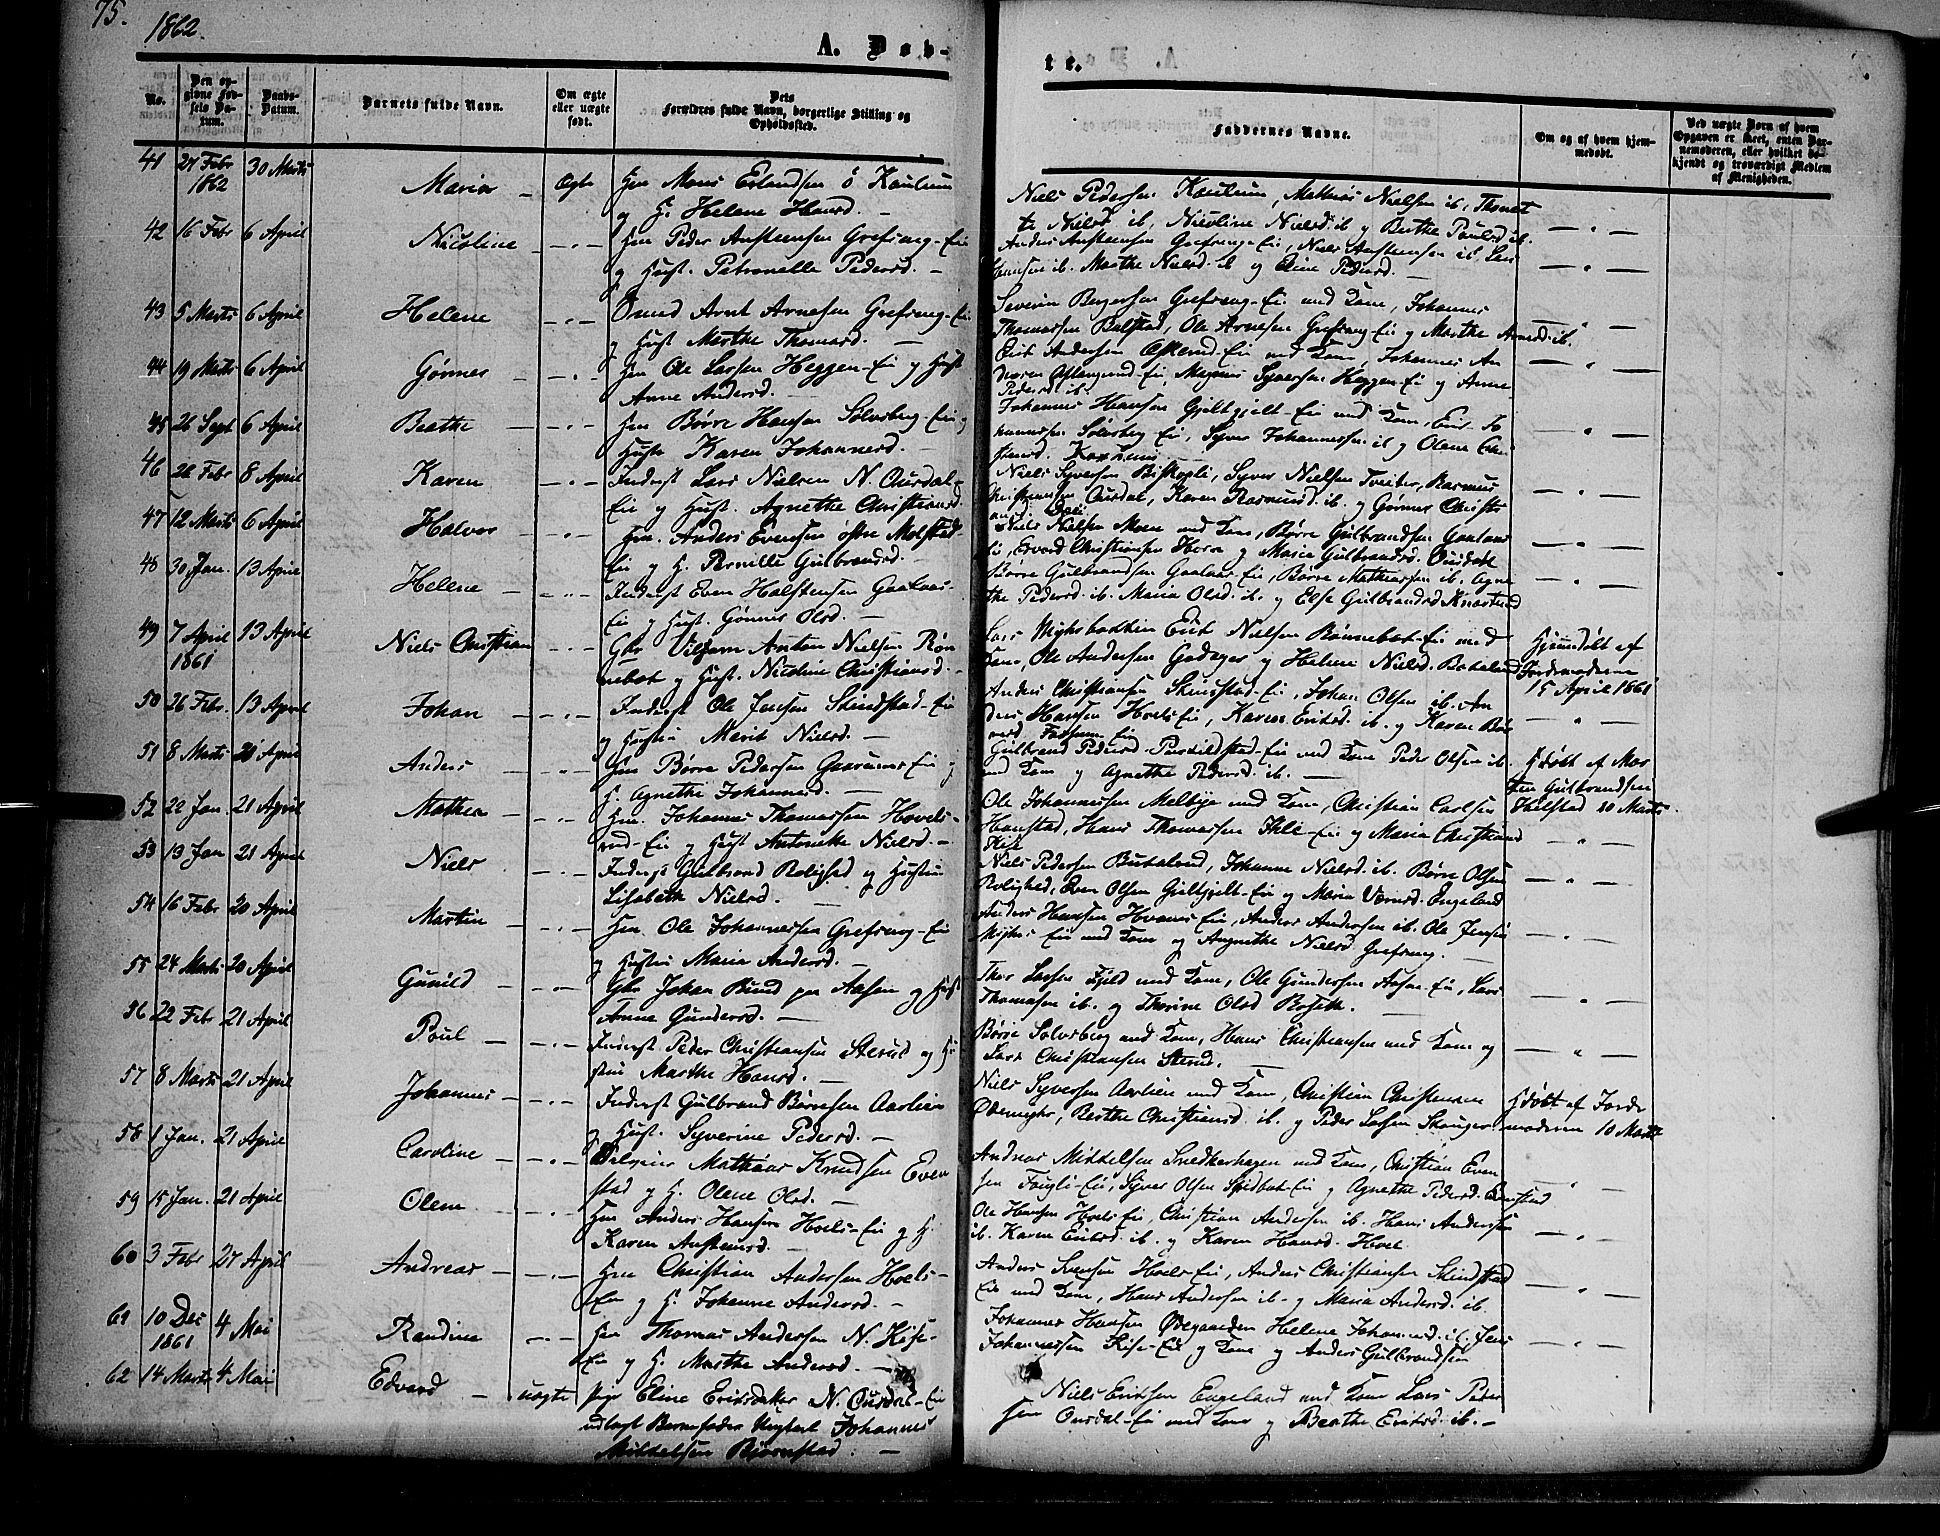 75.
1862.
A. Døb-
te.
No.
Den opgivne Fødsels Datum.
Daabs-Datum.
Barnets fulde Navn.
Om ægte eller uægte født.
Dets Forældres fulde Navn, borgerlige Stilling og Opholdssted.
Faddernes Navne.
Om og af hvem hjemmedøbt.
41 27 Febr 1862 30 Marts Maria Ægte Gm Mons Erlandsen ø Kaulum
og H. Helene Hansd.
Niels Pedersen Kaulum, Mathias Nielsen ib.
Nielsd ib, Nicoline Nielsd. ib og Berthe Paulsd ib.
42 16 Febr 6 April Nicoline Gm Peder Anstensen Grefsrng-Eie
og Hust. Petronelle Pedersd.
Anders Anstensen Grefsrng-Eie, Niels Anstensen ib, Lars
Hansen ib. Marthe Nielsd. ib og Eline Pedersd.
43 5 Marts 6 April Helene Arnt Arnesen Grefsrng-Eie
og Hust Marthe Thomasd.
Severin Borgersen Grefsrng-Eie med Kone, Johannes
Thomassen Balstad, Ole Arnesen Grefsrng-Eie og Marthe Arnesd. ib.
44 19 Marts 6 April Gønner Gm Ole Larsen Heggen-Eie og Hust
Anne Andersd.
Andersen Eie med Kone, Johannes
Magnus Syversen Heggen-Eie og Anne
Pedersd ib.
45 26 Sept 6 April Beathe Gm Børre Hansen Sølvsberg-Eie og
Hust. Karen Johannesd.
Johannes Hansen Gjeltgjelt-Eie med Kone, Erik Jo
hannessen Sølvsberg Eie, Syver Johannessen ib og Olene
46 28 Febr 8 April Karen Inderst Lars Nielsen N. Ousdal-
Eie og Hust. Agnethe Christiansd
Niels Syversen Biskopli, Syver Nielsen Tveiter, Rasmus
Christiansen Ousdal, Karen Rasmusd. ib. og Gønner Christi
47 12 Marts 6 April Halvor Gm. Anders Evensen østre Molstad
Eie og H. Pernille Gulbrandsd.
Niels Nielsen Moen med Kone, Børre Gulbrandsen Gaalaas
Eie, Edvard Christiansen Horn og Maria Gulbrandsd. Ousdal
48 30 Jan. 13 April Helene Inderst Even Halstensen Gaalaas-
Eie og Hust. Gønner Olsd.
Børre Gulbrandsen Gaalaas Eie, Børre Mathiassen ib. Agne
the Pedersd ib. Maria Olsd. ib. og Else Gulbrandsd Knarlund
49 7 April 1861 13 April Niels Christian Gbr Viljam Anton Nielsen Røn
nebat og Hust. Nicoline Christiansd.
Lars Myhrbakken Erik Nielsen Rønnebat-Eie med
Kone, Ole Andersen Godager og Helene Nielsd. Butalund
Hjemmdøbt af
Jordemoderen
15 April 1861
50 26 Febr. 13 April Johan Inderst Ole Jensen Skindstad-Eie
og Hustru Marit Nielsd.
Anders Christiansen Skindstad-Eie, Johan Olsen ib. An
ders Hansen Hvels-Eie, Karen Eriksd. ib. og Karen
51 8 Marts 20 April Anders Gm Børre Pedersen Gaarums Eie og
H. Agnethe Johannesd.
Gulbrand Pedersd Eie med Kone Peder Olsen ib.
med Kone og Agnethe Pedersd. ib.
Hjdøbt af Mor
ten Gulbrandsen
Hallstad 10 Marts
52 22 Jan. 21 April Mathea Gm. Johannes Thomassen Hovels-
rud-Eie og Hust Antonette Nielsd.
Ole Johannessen Melbye med Kone, Christian Carlsen
Hanstad, Hans Thomassen Ihle-Eie og Maria Christiansd
53 13 Jan 21 April Niels Inderst Gulbrand Rolighed og Hustru
Lisabeth Nielsd.
Niels Pedersen Butalund, Johanne Nielsd. ib. Børre Olsen
Rolighed, Even Olsen Gjeltgjelt-Eie og Maria Engeland
54 16 Febr 20 April Martin Gm. Ole Johannessen Grefsrng-Eie
og Hustru Maria Andersd.
Anders Hansen Hvams Eie, Anders Andersen ib. Ole Jensen
Myhrs Eie med Kone og Angnethe Nielsd. Grefsrng.
55 24 Marts 20 April Gunild Gbr Johan Bund paa Aasen og Hust
Anne Gundersd.
Thor Larsen Fjeld med Kone, Ole Gundersen Aasen-Eie, Lars
Thomasen ib. og Thorine Olsd
56 22 Febr 21 April Poul Inderst. Peder Christiansen Sterud og Hu
stru Marthe Hansd.
Børre Solvsberg med Kone, Hans Christiansen med Kone og
Lars Christiansen Sterud.
57 8 Marts 21 April Johannes Inderst Gulbrand Børresen Aarlien
og Hust. Syverine Pedersd.
Niels Syversen Aarlien med Kone, Christian Christensen
Ødemyhr, Berthe Christiansd. ib. og Peder Larsen Skonger
Hjdøbt af Jorde
moderen 10 Marts
58 1 Jan. 21 April Caroline Mathias Knudsen Even
stad og H. Olene Olsd.
Andreas Mikkelsen Snedkerhagen med Kone, Christian Even
sen Fougli-Eie, Syver Olsen Eie og Agnethe Pedersd. Evenstad
59 15 Jan. 21 April Olene Gm Anders Hansen Hvels-Eie og H.
Karen Anstensd.
Ole Hansen Hvels Eie, Christian Andersen ib. Hans Andersen
ib. Karen Eriksd. ib. og Karen Hansd. Hvel
60 3 Febr 27 April Andreas Gm Christian Andersen Hvels-
Eie og H. Johanne Andersd.
Anders Hvels-Eie, Anders Christiansen Skindstad
Eie med Kone, Hans Andersen ib. og Maria Andersd. ib.
61 10 Dec 1861 4 Mai Randine Gm Thomas Andersen N. Kise-
Eie og H. Marthe Andersd.
Johannes Hansen Ødegaarden Helene Johannesd. ib. Jens
Johannessen Kise-Eie og Kone og Anders Gulbrandsen
62 14 Marts 4 Mai Edvard uægte Pige Eline Eriksdatter N. Ousdal-Eie
udlagt Barnefader Ungkarl Johannes
Mikkelsen Bjørnstad.
Niels Eriksen Engeland med Kone Lars Peder
sen Ousdal-Eie med Kone og Berthe Eriksd. ib.
Ved uægte Børn af hvem Opgaven er skeet, enten Barnemoderen, eller hvilket bekjendt og troværdigt Medlem af Menigheden.